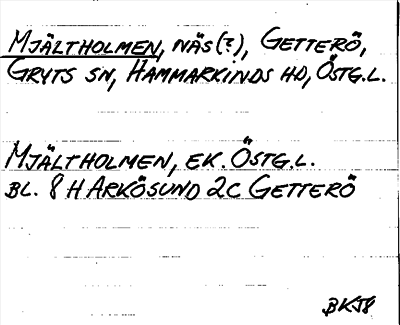 MJÄLTHOLMEN, NÄS(?), GETTERÖ,
GRYTS SN, HAMMARKINDS HD, ÖSTG.L.
MJÄLTHOLMEN, EK. ÖSTG.L.
BL. 8 H ARKÖSUND 2C GETTERÖ